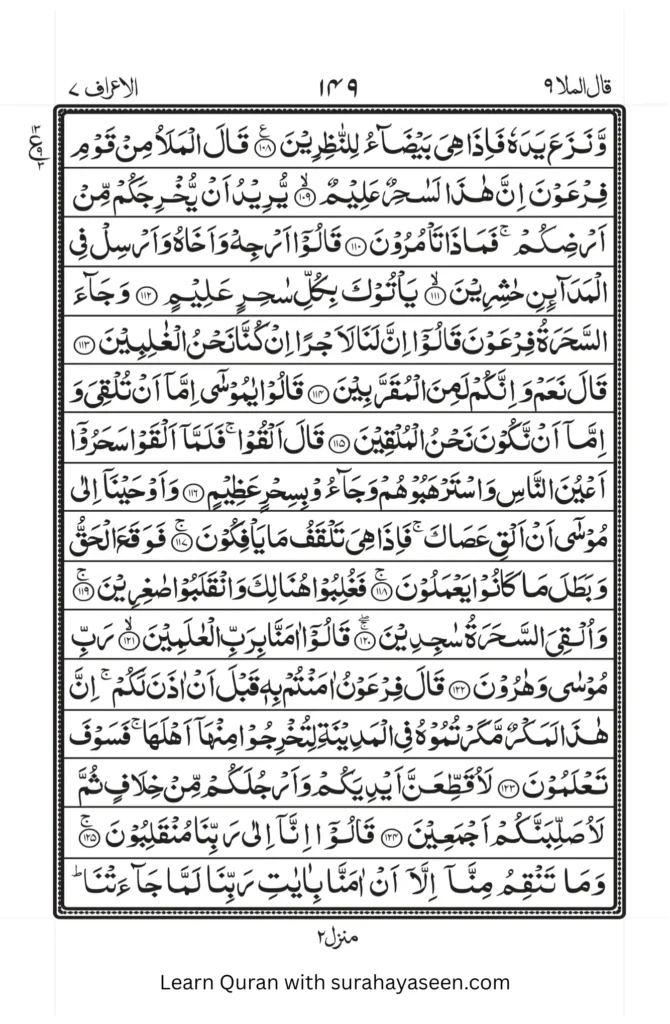 قال الملا ٩ ١٤٩ الاعراف ٧
وَّنَزَعَ يَدَهٗ فَاِذَا هِىَ بَيۡضَآءُ لِلنّٰظِرِيۡنَ ﴿۱۰۸﴾ قَالَ الۡمَلَاُ مِنۡ قَوۡمِ
ع ١٣ ٩ ٣
فِرۡعَوۡنَ اِنَّ هٰذَا لَسٰحِرٌ عَلِيۡمٌ ۙ‏﴿۱۰۹﴾ يُّرِيۡدُ اَنۡ يُّخۡرِجَكُمۡ مِّنۡ
اَرۡضِكُمۡ​ ۚ فَمَاذَا تَاۡمُرُوۡنَ ﴿۱۱۰﴾ قَالُوۡۤا اَرۡجِهۡ وَاَخَاهُ وَاَرۡسِلۡ فِى
الۡمَدَآٮِٕنِ حٰشِرِيۡنَ ۙ‏﴿۱۱۱﴾ يَاۡتُوۡكَ بِكُلِّ سٰحِرٍ عَلِيۡمٍ ﴿۱۱۲﴾ وَجَآءَ
السَّحَرَةُ فِرۡعَوۡنَ قَالُوۡۤا اِنَّ لَـنَا لَاَجۡرًا اِنۡ كُنَّا نَحۡنُ الۡغٰلِبِيۡنَ ﴿۱۱۳﴾
قَالَ نَعَمۡ وَاِنَّكُمۡ لَمِنَ الۡمُقَرَّبِيۡنَ ﴿۱۱۴﴾ قَالُوۡا يٰمُوۡسٰٓى اِمَّاۤ اَنۡ تُلۡقِىَ وَ
اِمَّاۤ اَنۡ نَّكُوۡنَ نَحۡنُ الۡمُلۡقِيۡنَ ﴿۱۱۵﴾ قَالَ اَلۡقُوۡا​ ۚ فَلَمَّاۤ اَلۡقَوۡا سَحَرُوۡۤا
اَعۡيُنَ النَّاسِ وَاسۡتَرۡهَبُوۡهُمۡ وَجَآءُوۡ بِسِحۡرٍ عَظِيۡمٍ ﴿۱۱۶﴾ وَاَوۡحَيۡنَاۤ اِلٰى
مُوۡسٰٓى اَنۡ اَلۡقِ عَصَاكَ​ ۚ فَاِذَا هِىَ تَلۡقَفُ مَا يَاۡفِكُوۡنَ​ ۚ‏﴿۱۱۷﴾ فَوَقَعَ الۡحَقُّ
وَبَطَلَ مَا كَانُوۡا يَعۡمَلُوۡنَ​ ۚ‏﴿۱۱۸﴾ فَغُلِبُوۡا هُنَالِكَ وَانْقَلَبُوۡا صٰغِرِيۡنَ​ ۚ‏﴿۱۱۹﴾
وَاُلۡقِىَ السَّحَرَةُ سٰجِدِيۡنَ ۖ ۚ‏﴿۱۲۰﴾ قَالُوۡۤا اٰمَنَّا بِرَبِّ الۡعٰلَمِيۡنَ ۙ‏﴿۱۲۱﴾ رَبِّ
مُوۡسٰى وَهٰرُوۡنَ ﴿۱۲۲﴾ قَالَ فِرۡعَوۡنُ اٰمَنۡتُمۡ بِهٖ قَبۡلَ اَنۡ اٰذَنَ لَـكُمۡ​ ۚ اِنَّ
هٰذَا لَمَكۡرٌ مَّكَرۡتُمُوۡهُ فِى الۡمَدِيۡنَةِ لِتُخۡرِجُوۡا مِنۡهَاۤ اَهۡلَهَا​ ۚ فَسَوۡفَ
تَعۡلَمُوۡنَ ﴿۱۲۳﴾ لَاُقَطِّعَنَّ اَيۡدِيَكُمۡ وَاَرۡجُلَكُمۡ مِّنۡ خِلَافٍ ثُمَّ
لَاُصَلِّبَنَّكُمۡ اَجۡمَعِيۡنَ ﴿۱۲۴﴾ قَالُوۡۤا اِنَّاۤ اِلٰى رَبِّنَا مُنۡقَلِبُوۡنَ​ ۚ‏﴿۱۲۵﴾
وَمَا تَنۡقِمُ مِنَّاۤ اِلَّاۤ اَنۡ اٰمَنَّا بِاٰيٰتِ رَبِّنَا لَمَّا جَآءَتۡنَا​ ؕ
منزل ٢
Learn Quran with surahayaseen.com